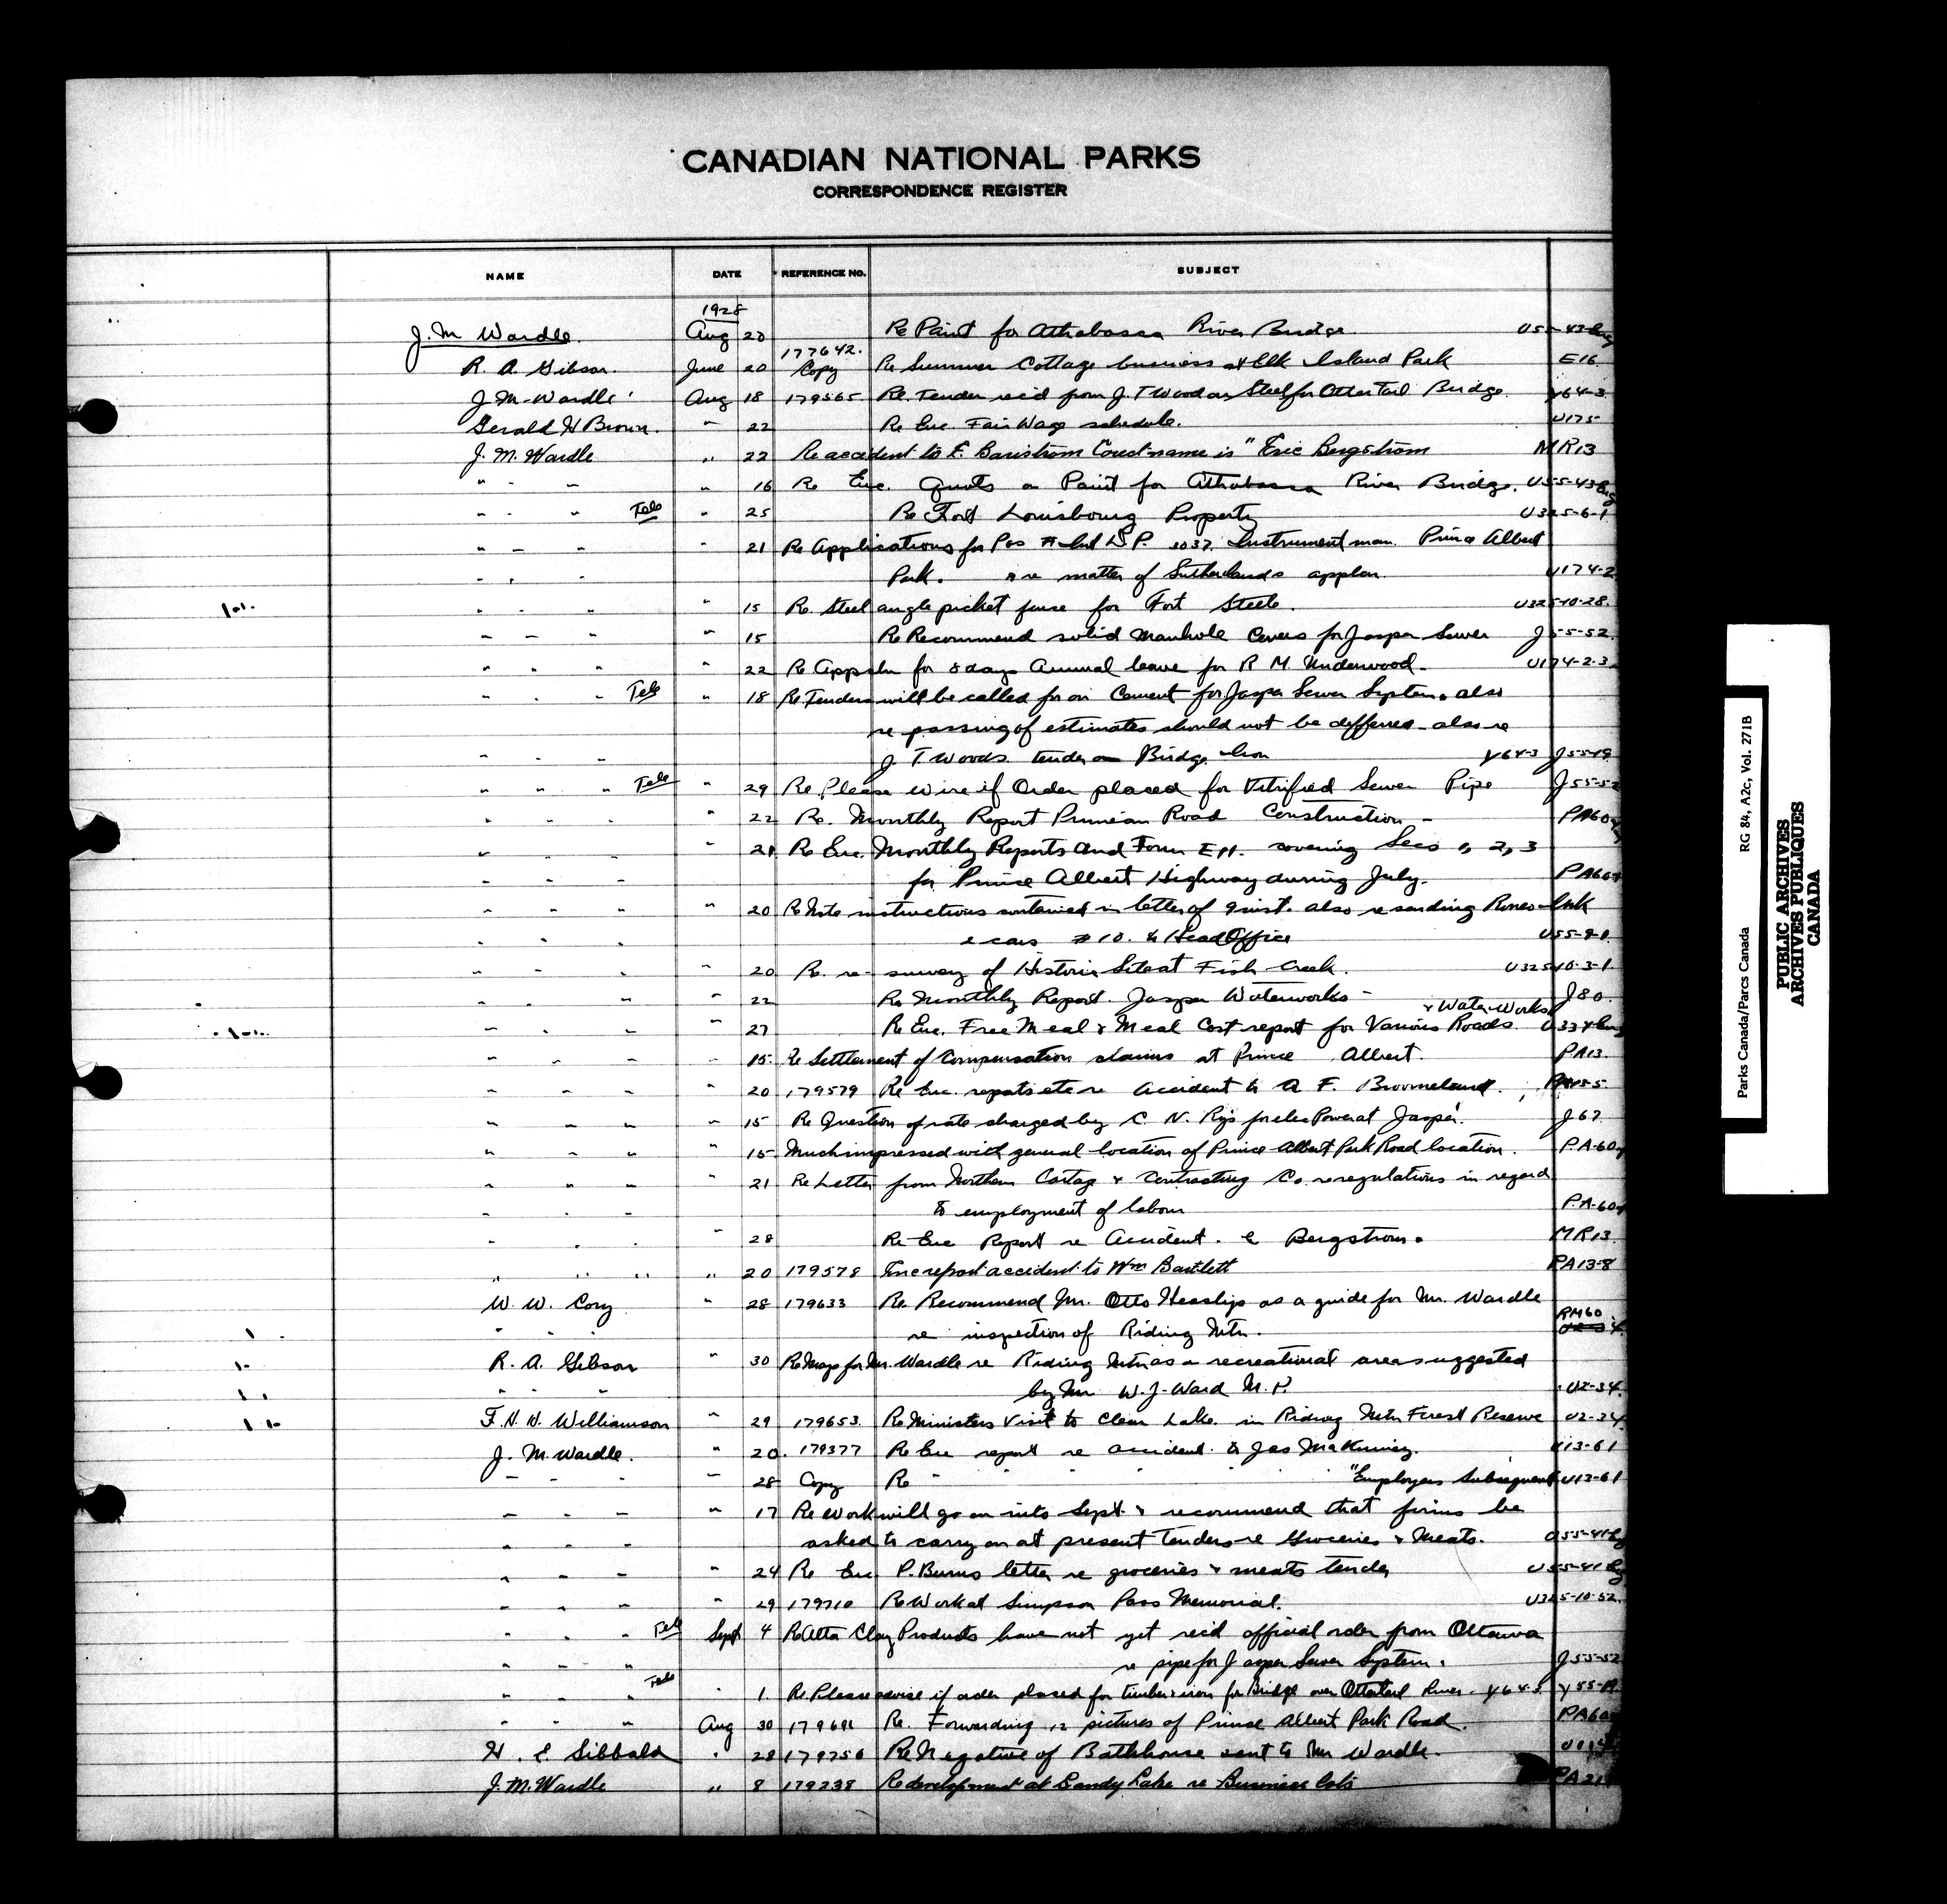 CANADIAN NATIONAL PARKS
CORRESPONDENCE REGISTER
NAME DATE REFERENCE NO. SUBJECT
1928
J. M. Wardle. Aug 20 Re Paint for Athabasca River Bridge. U55-43
R. A. Gibson. June 20 177642. Copy Re Summer Cottage business at Elk Island Park E16.
J. M. Wardle Aug 18 179565 Re. Tender rec'd from J. T Wood on Steel for Otter Tail Bridge. Y64-3
Gerald H Brown. " 22 Re Enc. Fair Wage schedule. U175
J. M. Wardle " 22 Re accident to E. Baristrom Correct name is "Eric Bergstrom MR13
" " " " 16 Re Enc. Quots on Paint for Athabasca River Bridge. U55-43
" " " Tele " 25 Re Fort Louisbourg Property U325-6-1
" " " " 21 Re Applications for Pos 3037. Instrument man. Prince Albert
" " " Park. & re matter of Sutherlands applcn. U174-2
" " " " 15 Re. Steel angle picket fence for Fort Steele. U325-10-28.
" " " " 15 Re Recommend solid Manhole Covers for Jasper Sewer J55-52.
" " " " 22 Re Appcln for 8 days Annual leave for R M Underwood. U174-2-3
" " " Tele " 18 Re Tenders will be called for on Cement for Jasper Sewer System, also
re passing of estimates should not be defferred also re
" " " J. T Woods tender on Bridge Iron Y64-3 J55-19
" " " Tele " 29 Re. Please wire if Order placed for Vitrified Sewer Pipe J55-52
" " " " 22 Re. Monthly Report Road Construction - PA60
" " " " 21 Re Enc. Monthly Reports and Form E11. covering Secs 1, 2, 3
" " " for Prince Albert Highway during July. PA60
" " " " 20 Re Note instructions contained in letter of 9 inst. also re sending Roneo Ink
" " " #10. to Head Office U55-9-1
" " " " 20 Re. re-survey of Historic Site at Fish Creek. U325-10-3-1.
" " " " 22 Re Monthly Report. Jasper Waterworks - J80.
& Water Works
" " " " 27 Re Enc. Free Meal & Meal Cost report for Various Roads. U334
" " " " 15 Re Settlement of Compensation claims at Prince Albert. PA13.
" " " " 20 179579 Re Enc. reports etc re accident to A F. 
" " " " 15 Re Question of rate charged by C. N. Rys for elec Power at Jasper. J67
" " " " 15 Much impressed with general location of Prince Albert Park Road location. P.A-60
" " " " 21 Re Letter from Northern Cartage & Contracting Co. re regulations in regard
" " " to employment of labour P.A-60
" " " " 28 Re Enc Report re accident. E Bergstrom. MR13.
" " " " 20 179578 Enc report accident to Wm Bartlett PA13-8
W. W. Cory " 28 179633 Re. Recommend Mr. Otto as a guide for Mr. Wardle
" " " re inspection of Riding Mtn. RM60
R. A. Gibson " 30 Re Maps for Mr. Wardle re Riding Mtn as a recreational area suggested
" " " by Mr W. J. Ward M. P. U2-34.
F. H. H. Williamson " 29 179653. Re Ministers Visit to Clear Lake in Riding Mtn Forest Reserve U2-34
J. M. Wardle. " 20. 179377 Re Enc report re accident to Jas McKinney. U13-61
" " " " 28 Copy Re " " " " "Employers Subsequent U13-61
" " " " 17 Re Work will go on into Sept. & recommend that firms be
" " " asked to carry on at present tenders re Groceries & Meats. U55-41
" " " " 24 Re Enc P. Burns letter re groceries & meats tender U55-41
" " " " 29 179710 Re Work at Simpson Pass Memorial. U325-10-52.
" " " Tele Sept 4 Re Alta Clay Products have not yet rec'd official order from Ottawa
" " " re pipe for Jasper Sewer System. J55-52
" " " Tele " 1. Re. Please advise if order placed for timber & iron for Bridge over Ottertail River. Y64-3. Y55-19.
" " " Aug 30 179691 Re. Forwarding 12 pictures of Prince Albert Park Road. PA60
H. E. Sibbald " 28 179756 Re Negative of Bathhouse sent to Mr Wardle.
J. M. Wardle " 8 179238 Re development at Sandy Lake re Business lots PA21
Parks Canada/Parcs Canada RG 84, A2c, Vol. 271B
PUBLIC ARCHIVES
ARCHIVES PUBLIQUES
CANADA